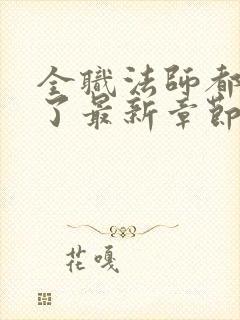 全職法師都
了最新章節
花嘎